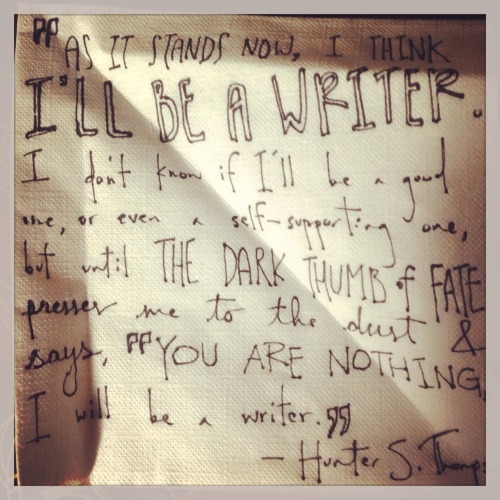 "AS IT STANDS NOW, I THINK
I'LL BE A WRITER.
I don't know if I'll be a good
one, or even a self-supporting one,
but until THE DARK THUMB of FATE
presses me to the dust &
says, "YOU ARE NOTHING,
I will be a writer."
— Hunter S. Thomps